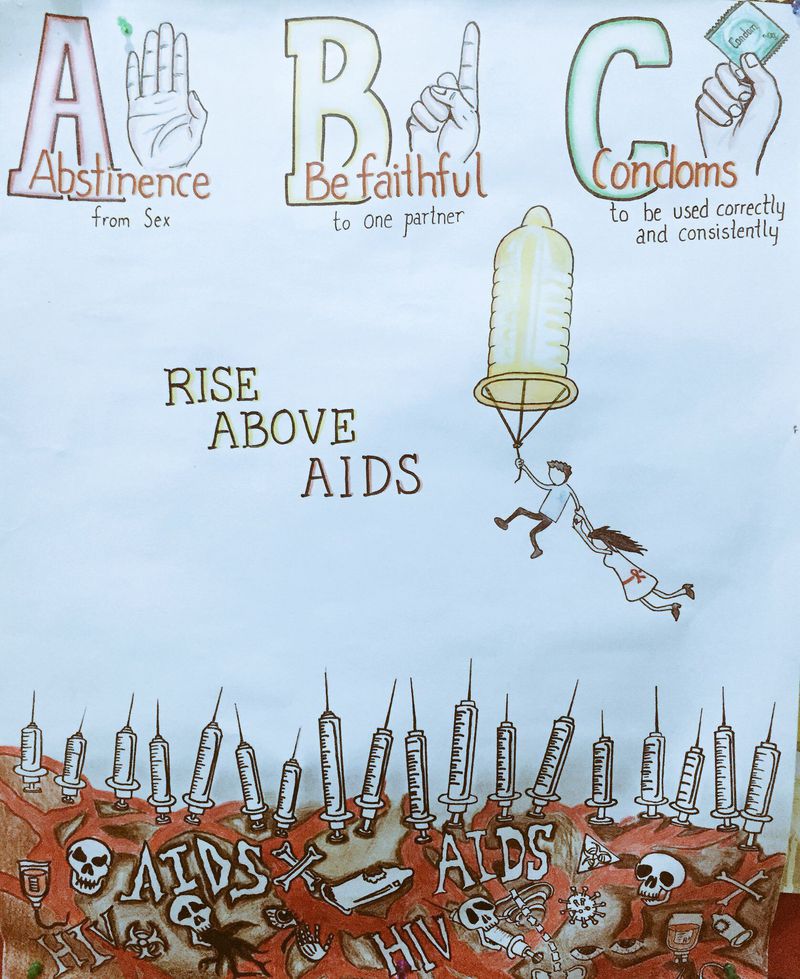 A B C
Condom
Abstinence
from Sex
Be faithful
to one partner
Condoms
to be used correctly
and consistently
RISE
ABOVE
AIDS
AIDS
AIDS
HIV
HIV